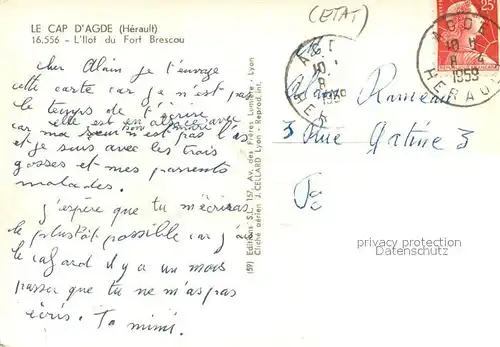 LE CAP D'AGDE (Hérault)
16.556 - L'Ilot du Fort Brescou
Cher Alain je t'envoye
cette carte car je n'est pas
le temps de t'écrire
elle est en alsace avec
car ma sœur n'est pas là
et je suis avec les trois
gosses et mes parents
malades.
j'espère que tu m'écriras
le plustôt possible car j'ai
le cafard il y a un mois
passer que tu ne m'as pas
écris. Ta mimi.
(59) Editions S.L. 157, Av. des Frères Lumière - Lyon
Cliché aérien J. CELLARD Lyon - Reprod. int.
(ETAT)
AGDE
HERAULT
1959
25
AGDE
HERAULT
1959
Rameau
3 Rue 3
privacy protection
Datenschutz